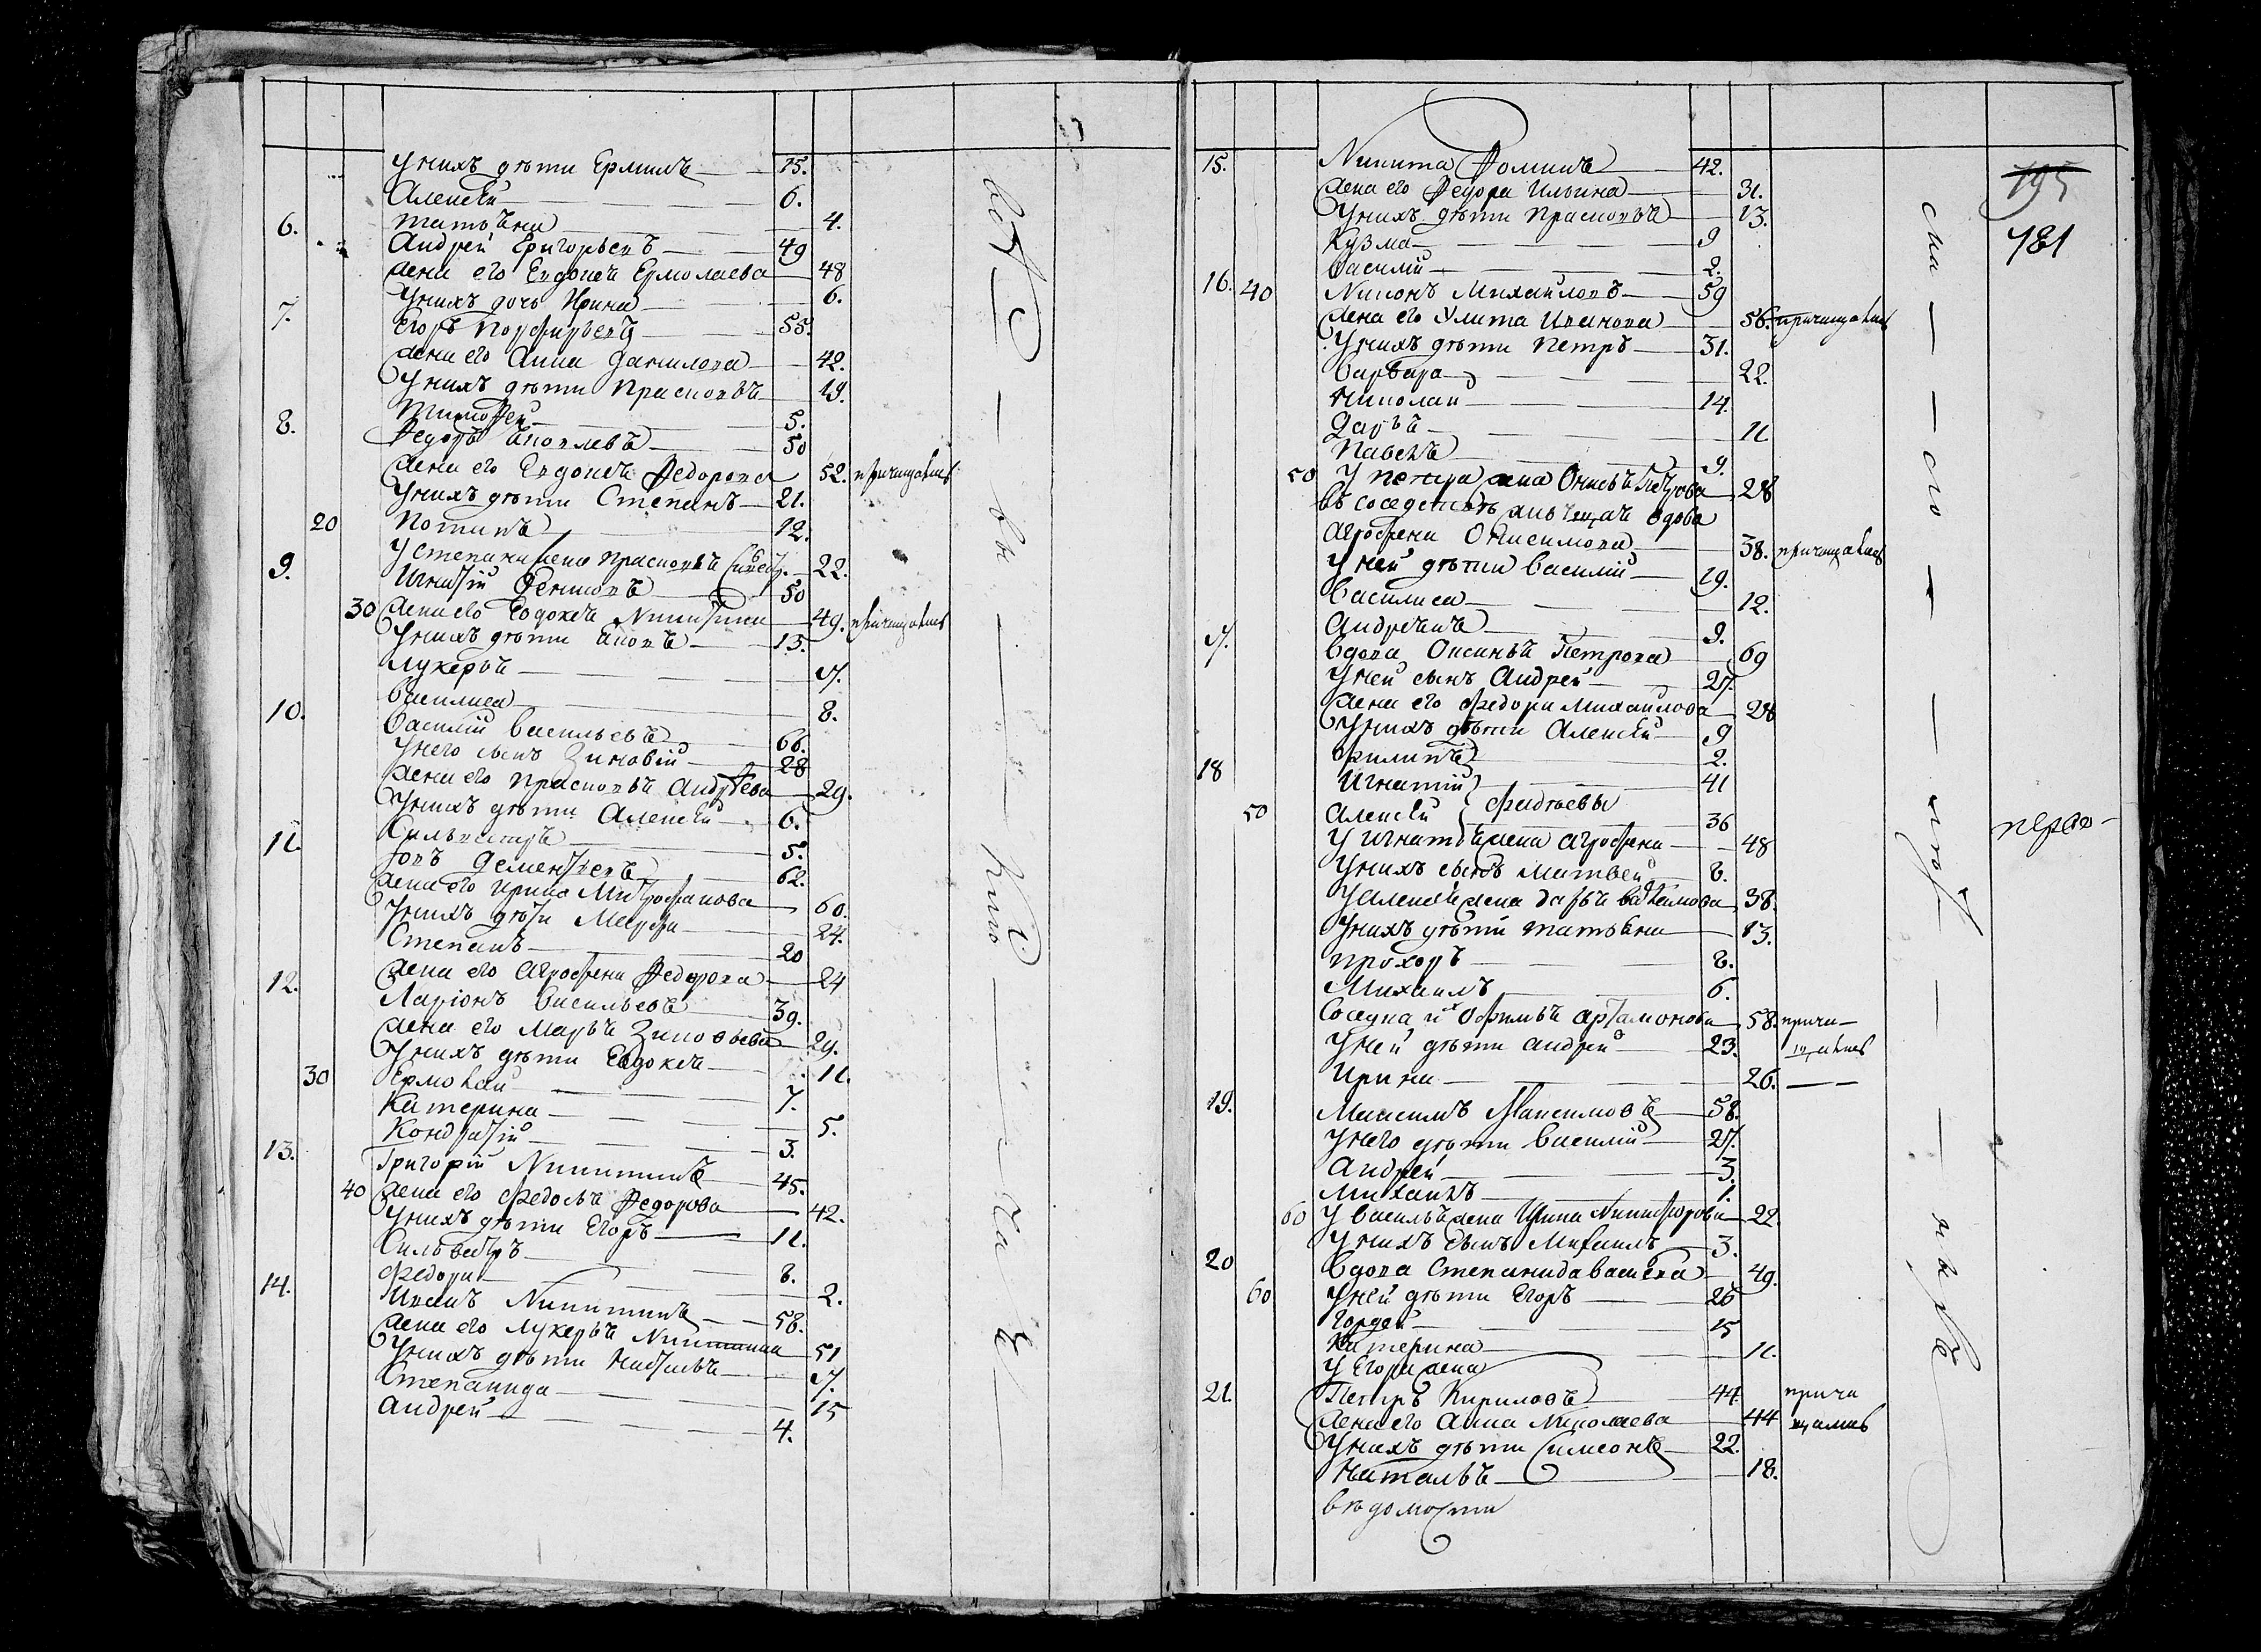 Унихъ дѣти Ермилъ — 15.
Алексѣй — 6.
Татьяна — 4.
6. Андрей Григорьевъ — 49
жена его Евдокея Ермолаева — 48
Унихъ дочь Ирина — 6.
7. Егоръ Порфирьевъ — 55.
жена его Анна Данилова — 42.
Унихъ дѣти Прасковья — 19.
Тимофей — 5.
8. Федоръ Яковлевъ — 50
жена его Евдокея Федорова — 52. причащались
Унихъ дѣти Степанъ — 21.
20 Потапъ — 12.
У Степана жена Прасковья — 22.
9. Игнатій — 50
30 жена его Евдокея Никитина — 49. причащались
Унихъ дѣти Яковъ — 13.
Лукерья — 17.
Василиса — 8.
10. Василій Васильевъ — 66.
Унего сынъ Зиновій — 28
жена его Прасковья Андреева — 29.
Унихъ дѣти Алексѣй — 6.
Сильвестръ — 5.
11. Іовъ Дементьевъ — 62.
жена его Ирина Митрофанова — 60.
Унихъ дѣти Марфа — 24.
Степанъ — 20
жена его Агрофена Федорова — 24
12. Ларіонъ Васильевъ — 39.
жена его Марья Зиновьева — 29.
Унихъ дѣти Евдокея — 11.
30 Ермолай — 7.
Катерина — 5.
Кондратій — 3.
13. Григорій Никитинъ — 45.
40 жена его Федосья Федорова — 42.
Унихъ дѣти Егоръ — 11.
Сильвестръ — 8.
Федора — 2.
14. Иванъ Никитинъ — 58.
жена его Лукерья Никитина — 51
Унихъ дѣти Наталья — 17.
Степанида — 15
Андрей — 4.
15. Никита Фоминъ — 42.
жена его Федора Ильина — 31.
Унихъ дѣти Прасковья — 13.
Кузма — 9
Василій — 2.
16. 40 Никонъ Михайловъ — 59
жена его Улита Иванова — 56. причащались
Унихъ дѣти Петръ — 31.
Варвара — 22.
Николай — 14.
Дарья — 11
Павелъ — 9.
50 У Петра жена Онисья Петрова — 28
въ соседствѣ вдова
Агрофена Онисимова — 38. причащались
Уней дѣти Василій — 19.
Василиса — 12.
Андреянъ — 9.
17. Вдова Оксинья Петрова — 69
Уней сынъ Андрей — 27.
жена его Федора Михайлова — 28
Унихъ дѣти Алексѣй — 9
Филипъ — 2.
18 Игнатій — 41
50 Алексѣй Фадѣевы — 36
У Игнатья жена Агрофена — 48
Унихъ сынъ Матвей — 8.
У Алексѣя жена Дарья — 38.
Унихъ дѣти Татьяна — 13.
Прохоръ — 8.
Михаилъ — 6.
Соседка и Офимья Артамонова — 58. прича-
Уней дѣти Андрей — 23. щались
Ирина — 26. —
19. Максимъ Максимовъ — 58.
Унего дѣти Василій — 27.
Андрей — 3
Михаилъ — 1.
60 У Василья жена Ирина Никифорова — 22.
Унихъ сынъ Михаилъ — 3.
20 Вдова Степанида — 49.
60 Уней дѣти Егоръ — 26
Гордей — 15
Катерина — 11.
У Егора жена
21. Петръ Кириловъ — 44. прича
жена его Анна Николаева — 44 щались
Унихъ дѣти Симеонъ — 22.
Наталья — 18.
вѣдомости
195
181